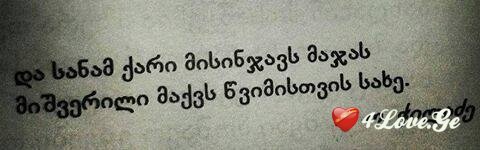 და სანამ ქარი მისინჯავს მაჯას
მიშვერილი მაქვს წვიმისთვის სახე.
4Love.Ge